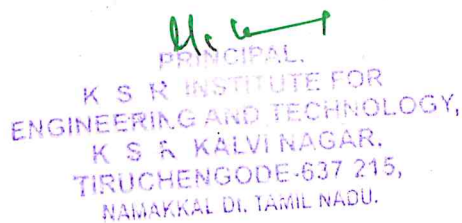 PRINCIPAL.
K S R INSTITUTE FOR
ENGINEERING AND TECHNOLOGY,
K S R KALVI NAGAR.
TIRUCHENGODE-637 215,
NAMAKKAL DI. TAMIL NADU.